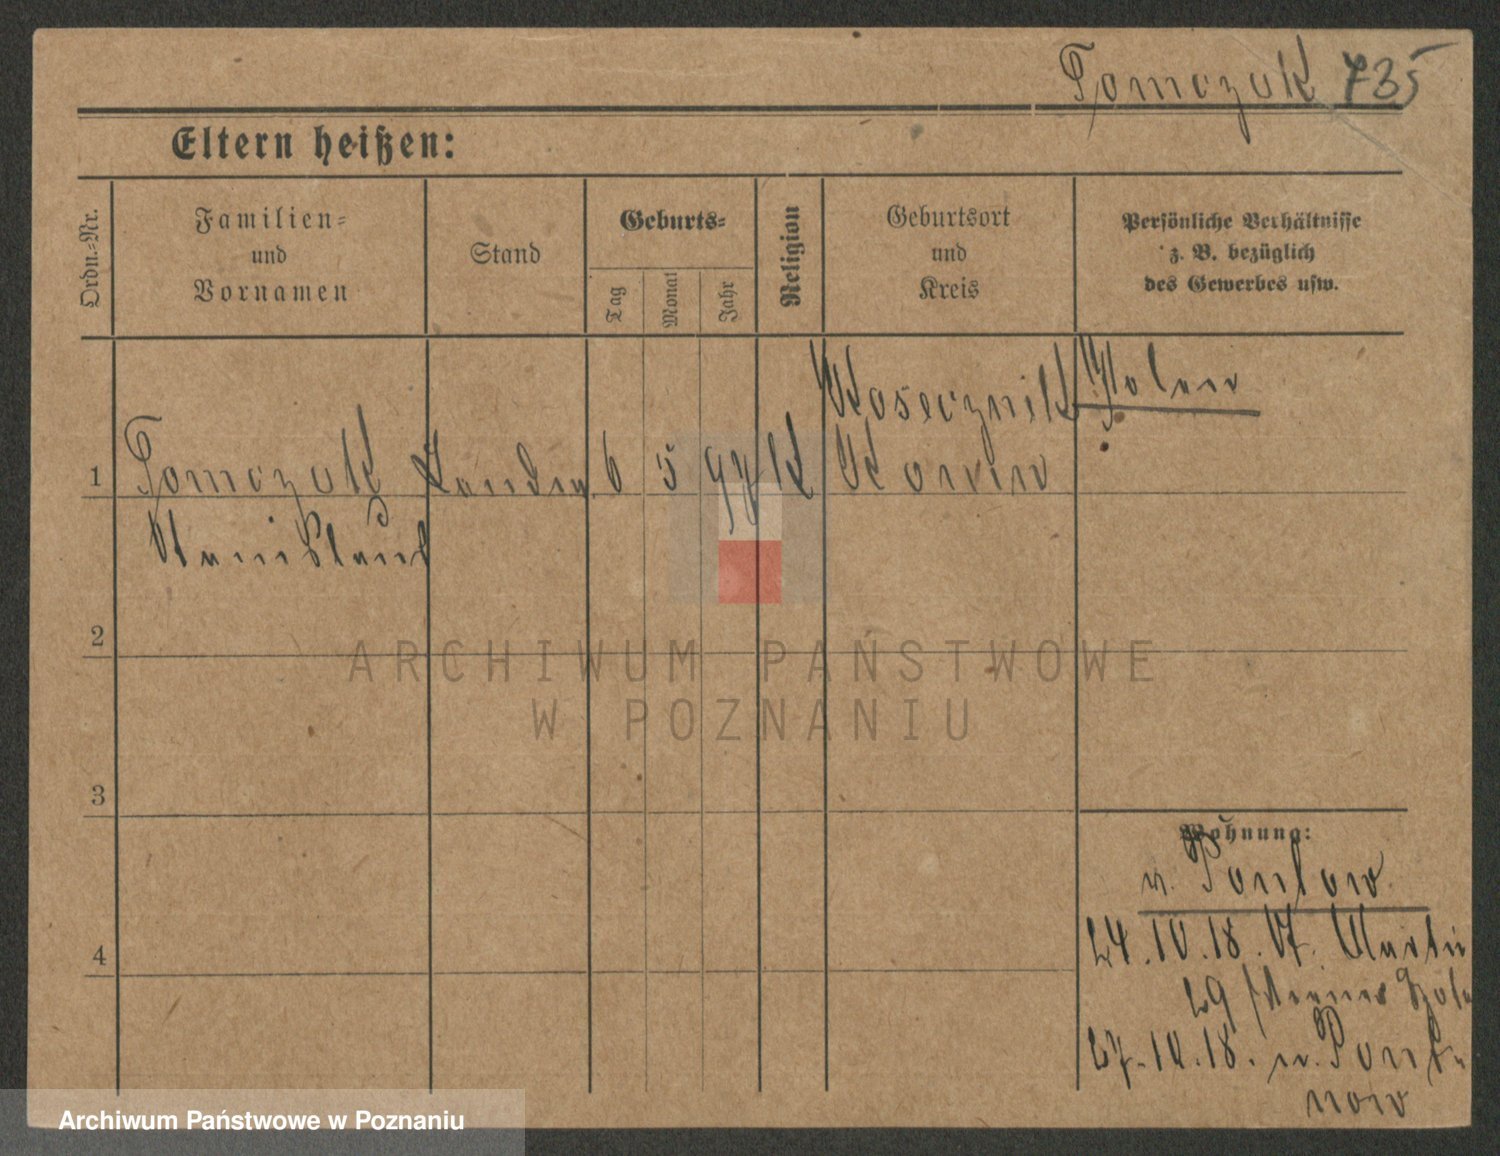 Tomczak 735
Eltern heißen:
Ordn.-Nr.
Familien-
und
Vornamen
Stand
Geburts-
Tag
Monat
Jahr
Religion
Geburtsort
und
Kreis
Persönliche Verhältnisse
z. B. bezüglich
des Gewerbes usw.
Polen
1
Tomczak
6 5 97 K
Stanislaus
2
ARCHIWUM PAŃSTWOWE
W POZNANIU
3
Wohnung:
n.
4
24.10.18. St. Martin
29
27.10.18. n.
Archiwum Państwowe w Poznaniu